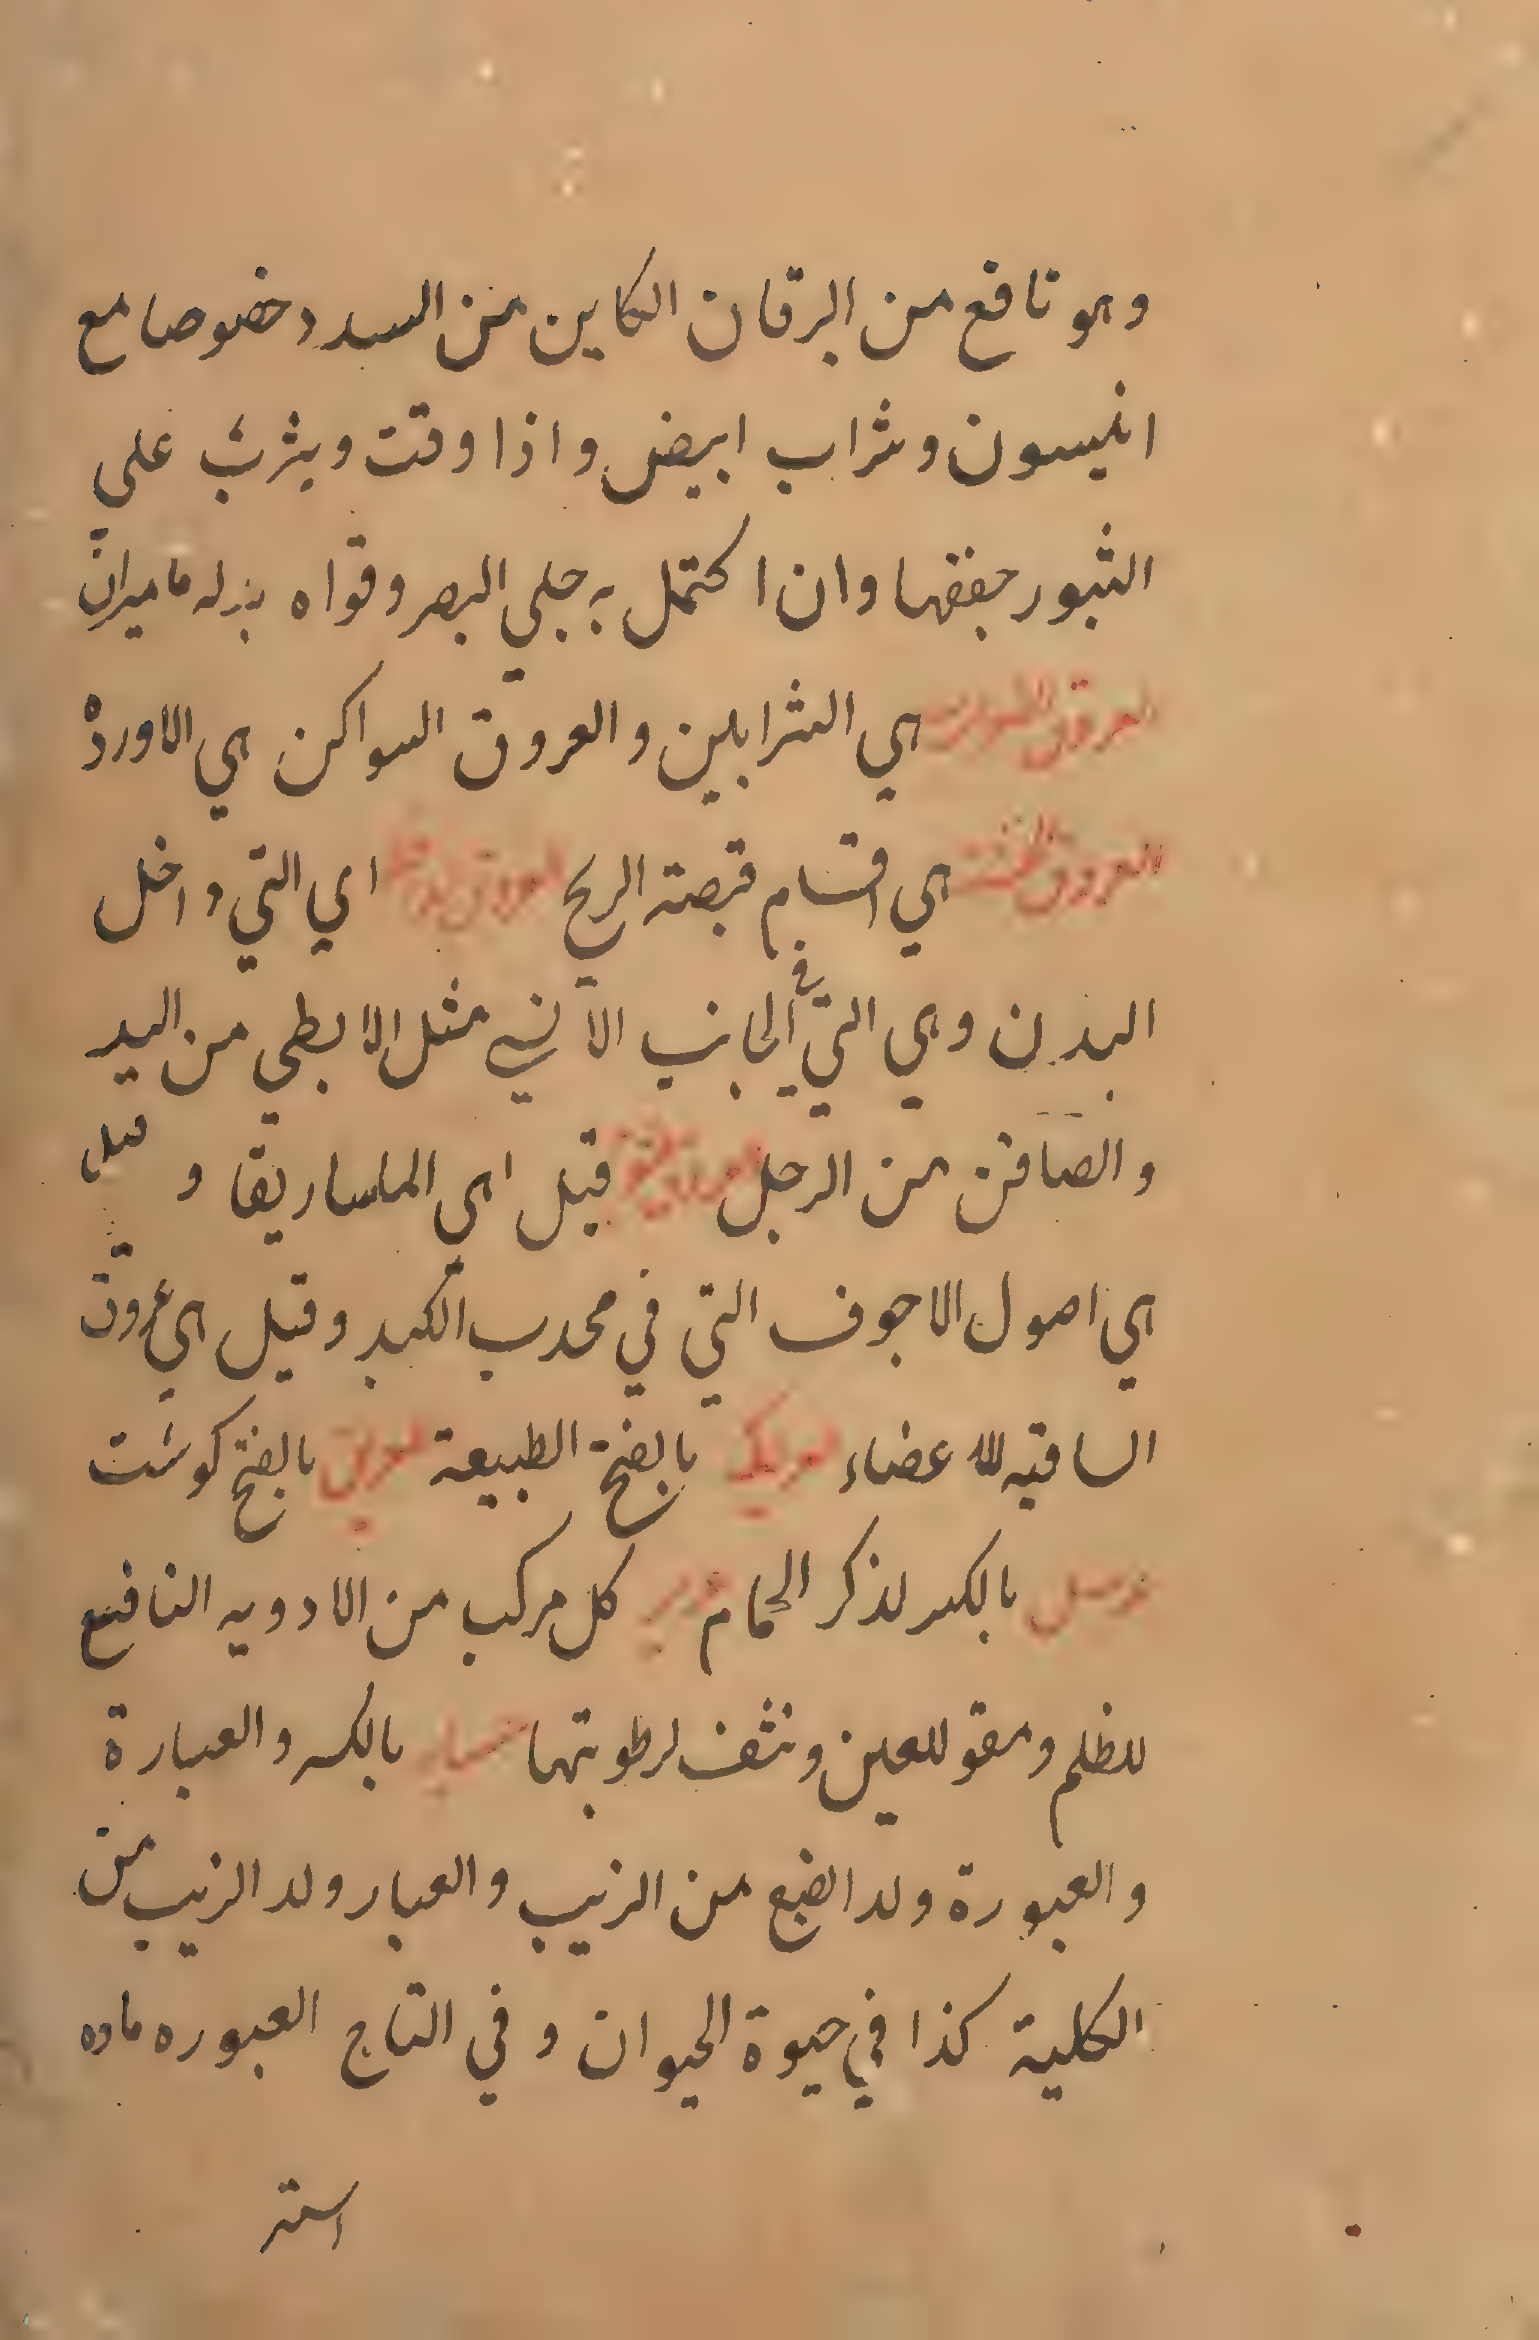 وهو نافع من اليرقان الكاين من السدد خصوصا مع
انيسون وشراب ابيض واذا وقت ويثرب علي
الثبور جففها وان اكتحل به جلي البصر وقواه بدله ماميران
العروق الضوارب هي الشرايين والعروق السواكن هي الاوردة
العروق هي اقسام قبصة الريح العروق اي التي داخل
البدن وهي التي في الجانب الانسي مثل الابطي من اليد
والصافن من الرجل العروق قيل هي الماساريقا و قيل
هي اصول الاجوف التي في محدب الكبد وقيل هي عروق
الساقيه للاعضاء عريكه بالفتح الطبيعة بالفتح كوشت
بالكسر لذكر الحمام كل مركب من الادويه النافع
للظلم ومقو للعين ونثف لرطوبتها عسبار بالكسر والعبارة
والعبورة ولد الضبع من الزيب والعبار ولد الزيب من
الكلية كذا في حيوة الحيوان وفي التاج العبوره ماده
استر